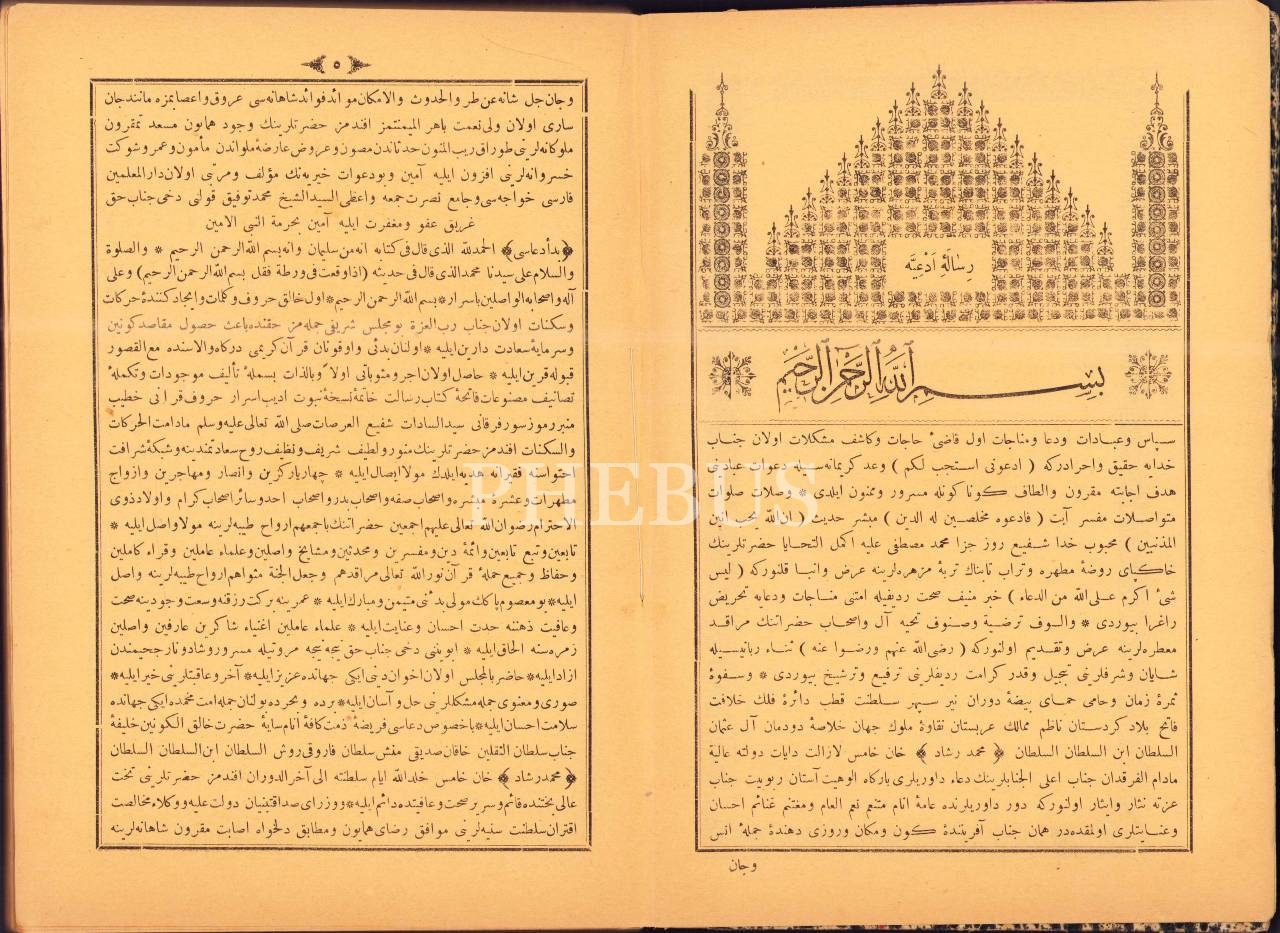 رسالهٔ ادعیه
بسم الله الرحمن الرحیم
سپاس وعبادات ودعا ومناجات اول قاضئ حاجات وكاشف مشكلات اولان جناب
خدایه حقیق واحرادركه ( ادعونی استجب لكم ) وعد كریمانه سیله دعوات عبادنی
هدف اجابته مقرون والطاف كونا كونله مسرور وممنون ایلدی * وصلات صلوات
متواصلات مفسر آیت ( فادعوه مخلصین له الدین ) مبشر حدیث ( ان الله یحب انین
المذنبین ) محبوب خدا شفیع روز جزا محمد مصطفی علیه اكمل التحایا حضرتلرینك
خاكپای روضهٔ مطهره وتراب تابناك تربهٔ مزهره لرینه عرض وانها قلنوركه ( لیس
شئ اكرم علی الله من الدعاء ) خبر منیف صحت ردیفیله امتنی مناجات ودعایه تحریض
راغرا بیوردی * والوف ترضیهٔ وصنوف تحیه آل واصحاب حضراتنك مراقد
معطره لرینه عرض وتقدیم اولنوركه ( رضی الله عنهم ورضوا عنه ) ثناء ربانیسیله
شایان وشرفلرینی تبجیل وقدر كرامت ردیفلرینی ترفیع وترشیخ بیوردی * وسفوهٔ
ثمرهٔ زمان وحامی حمای بیضهٔ دوران نیر سپهر سلطنت قطب دائرهٔ فلك خلافت
فاتح بلاد كردستان ناظم ممالك عربستان نقاوهٔ ملوك جهان خلاصهٔ دودمان آل عثمان
السلطان ابن السلطان السلطان ﴿ محمد رشاد ﴾ خان خامس لازالت رایات دولته عالیة
مادام الفرقدان جناب اعلی الجنابلرینك دعاء داوریلری باركاه الوهیت آستان ربوبیت جناب
عزته نثار وایثار اولنوركه دور داوریلرنده عامهٔ انام متنعم نعم العام ومغتنم غنائم احسان
وعنایتلری اولمقده در همان جناب آفرینندهٔ كون ومكان وروزی دهندهٔ جملهٔ انس
وجان
٥
وجان جل شانه عن طر والحدوث والامكان موائد فوائد شاهانه سی عروق واعصابمزه مانند جان
ساری اولان ولی نعمت باهر المیمنتمز افندمز حضرتلرینك وجود همایون مسعد تمقرون
ملوكانه لرینی طوراق ریب المنون حدثاندن مصون وعروض عارضهٔ ملواندن مأمون وعمر وشوكت
خسروانه لرینی افزون ایلیه آمین وبودعوات خیریه نك مؤلف ومرتبی اولان دارالمعلمین
فارسی خواجه سی وجامع نصرت جمعه واعظی السید الشیخ محمد توفیق قولنی دخی جناب حق
غریق عفو ومغفرت ایلیه آمین بحرمة النبی الامین
﴿بدأ دعاسی﴾ الحمدلله الذی قال فی كتابه انه من سلیمان وانه بسم الله الرحمن الرحیم * والصلوة
والسلام علی سیدنا محمد الذی قال فی حدیثه (اذا وقعت فی ورطة فقل بسم الله الرحمن الرحیم) وعلی
آله واصحابه الواصلین باسرار*بسم الله الرحمن الرحیم*اول خالق حروف وكلمات وایجاد كنندهٔ حركات
وسكنات اولان جناب رب العزة بو مجلس شریفی جمله مز حقنده باعث حصول مقاصد كونین
وسرمایهٔ سعادت دارین ایلیه *اولنان بدئی واوقونان قرآن كریمی دركاه والاسنده مع القصور
قبوله قرین ایلیه * حاصل اولان اجر ومثوباتی اولا وبالذات بسملهٔ تألیف موجودات وتكملهٔ
تصانیف مصنوعات فاتحهٔ كتاب رسالت خاتمهٔ نسخهٔ نبوت ادیب اسرار حروف قرآنی خطیب
منبر رموز سور فرقانی سید السادات شفیع العرصات صلی الله تعالی علیه وسلم مادامت الحركات
والسكنات افندمز حضرتلرینك منور ولطیف شریف ونظیف روح سعادتمندینه وشبكهٔ شرافت
احتواسنه فقیرانه هدیه ایلدك مولا ایصال ایلیه * چهاریار كزین وانصار ومهاجرین وازواج
مطهرات وعشرهٔ مبشره واصحاب صفه واصحاب بدر واصحاب احد وسائر اصحاب كرام واولاد ذوی
الاحترام رضوان الله تعالی علیهم اجمعین حضراتنك باجمعهم ارواح طیبه لرینه مولا واصل ایلیه *
تابعین وتبع تابعین وائمهٔ دین ومفسرین ومحدثین ومشایخ واصلین وعلماء عاملین وقراء كاملین
وحفاظ وجمیع حملهٔ قرآن نورالله تعالی مراقدهم وجعل الجنة مثواهم ارواح طیبه لرینه واصل
ایلیه*بو معصوم پاكك مولی بدئنی متیمن ومبارك ایلیه * عمرینه بركت رزقنه وسعت وجودینه صحت
وعافیت ذهننه حدت احسان وعنایت ایلیه * علماء عاملین اغنیاء شاكرین عارفین واصلین
زمره سنه الحاق ایلیه * ابوینی دخی جناب حق بیجه بیجه مروتیله مسرور وشاد ونارجحیمندن
ازاد ایلیه*حاضر بالمجلس اولان اخوان دنی ایكی جهانده عزیز ایلیه*آخر وعاقبتلرینی خیر ایلیه*
صوری ومعنوی جمله مشكللرینی حل وآسان ایلیه* برده وبحرده بولنان جمله امت محمده ایكی جهانده
سلامت احسان ایلیه*باخصوص دعاسی فریضهٔ ذمت كافهٔ انام سایهٔ حضرت خالق الكونین خلیفهٔ
جناب سلطان الثقلین خاقان صدیقی منش سلطان فاروقی روش السلطان ابن السلطان السلطان
﴿محمد رشاد﴾ خان خامس خلدالله ایام سلطنته الی آخر الدوران افندمز حضرتلرینی تخت
عالی بختنده قائم وسریر صحت وعافیتده دائم ایلیه*ووزرای صداقتنشان دولت علیه ووكلاء مخالصت
اقتران سلطنت سنیه لرینی موافق رضای همایون ومطابق دلخواه اصابت مقرون شاهانه لرینه
PHEBUS